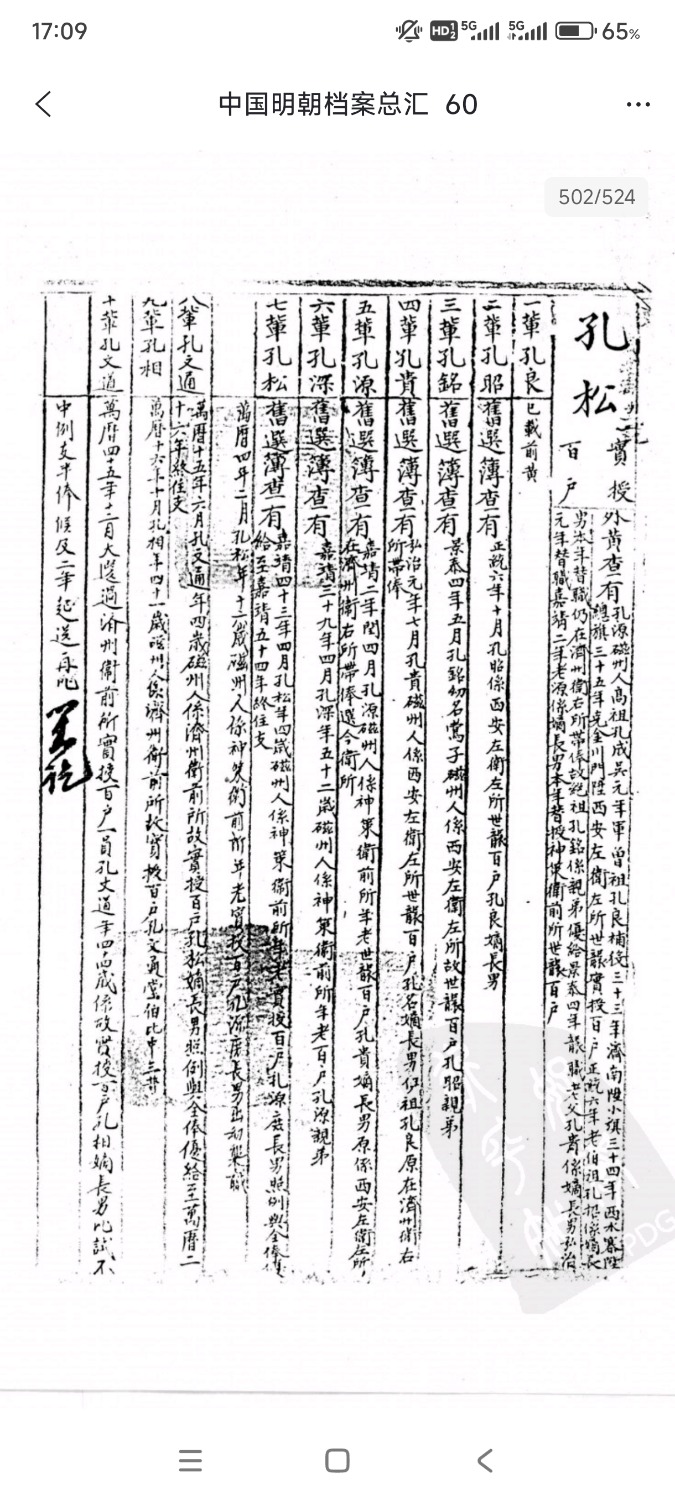 17:09
HD 1 2 5G 5G 65%
中国明朝档案总汇 60
502/524
孔松
實授百戶
外黃查有孔源磁州人高祖孔成吳元年軍曾祖孔良補役三十三年濟南陞小旗三十四年西水寨陞
總旗三十五年克金川門陞西安左衛左所世襲實授百戶正統六年老伯祖孔昭係嫡長
男本年替職仍在濟州衛右所帶俸故絕祖孔銘係親弟優給景泰四年襲職老父孔貴係嫡長男弘治
元年替職嘉靖二年老源係嫡長男本年替授神策衛前所世襲百戶
一輩孔良 已載前黃
二輩孔昭 舊選簿查有 正統六年十月孔昭係西安左衛左所世襲百戶孔良嫡長男
三輩孔銘 舊選簿查有 景泰四年五月孔銘幼名鶯子磁州人係西安左衛左所故世襲百戶孔昭親弟
四輩孔貴 舊選簿查有 弘治元年七月孔貴磁州人係西安左衛左所世襲百戶孔名嫡長男伊祖孔良原在濟州衛右
所帶俸
五輩孔源 舊選簿查有 嘉靖二年閏四月孔源磁州人係神策衛前所年老世襲百戶孔貴嫡長男原係西安左衛左所
在濟州衛右所帶俸選今衛所
六輩孔深 舊選簿查有 嘉靖三十九年四月孔深年五十二歲磁州人係神策衛前所年老百戶孔源親弟
七輩孔松 舊選簿查有 嘉靖四十三年四月孔松年四歲磁州人係神策衛前所年老實授百戶孔源庶長男照例與全俸優
給至嘉靖五十四年終住支
萬曆四年二月孔松年十六歲磁州人係神策衛前所年老實授百戶孔源庶長男出幼襲職
八輩孔文通 萬曆十五年六月孔文通年四歲磁州人係濟州衛前所故實授百戶孔松嫡長男照例與全俸優給至萬曆二
十六年終住支
九輩孔相 萬曆十六年十月孔相年四十一歲磁州人係濟州衛前所故實授百戶孔文通堂伯比中三等
十輩孔文道 萬曆四五年十二月大選過濟州衛前所實授百戶一員孔文道年四歲係故實授百戶孔相嫡長男比試不
中例支半俸候及二年起送再比